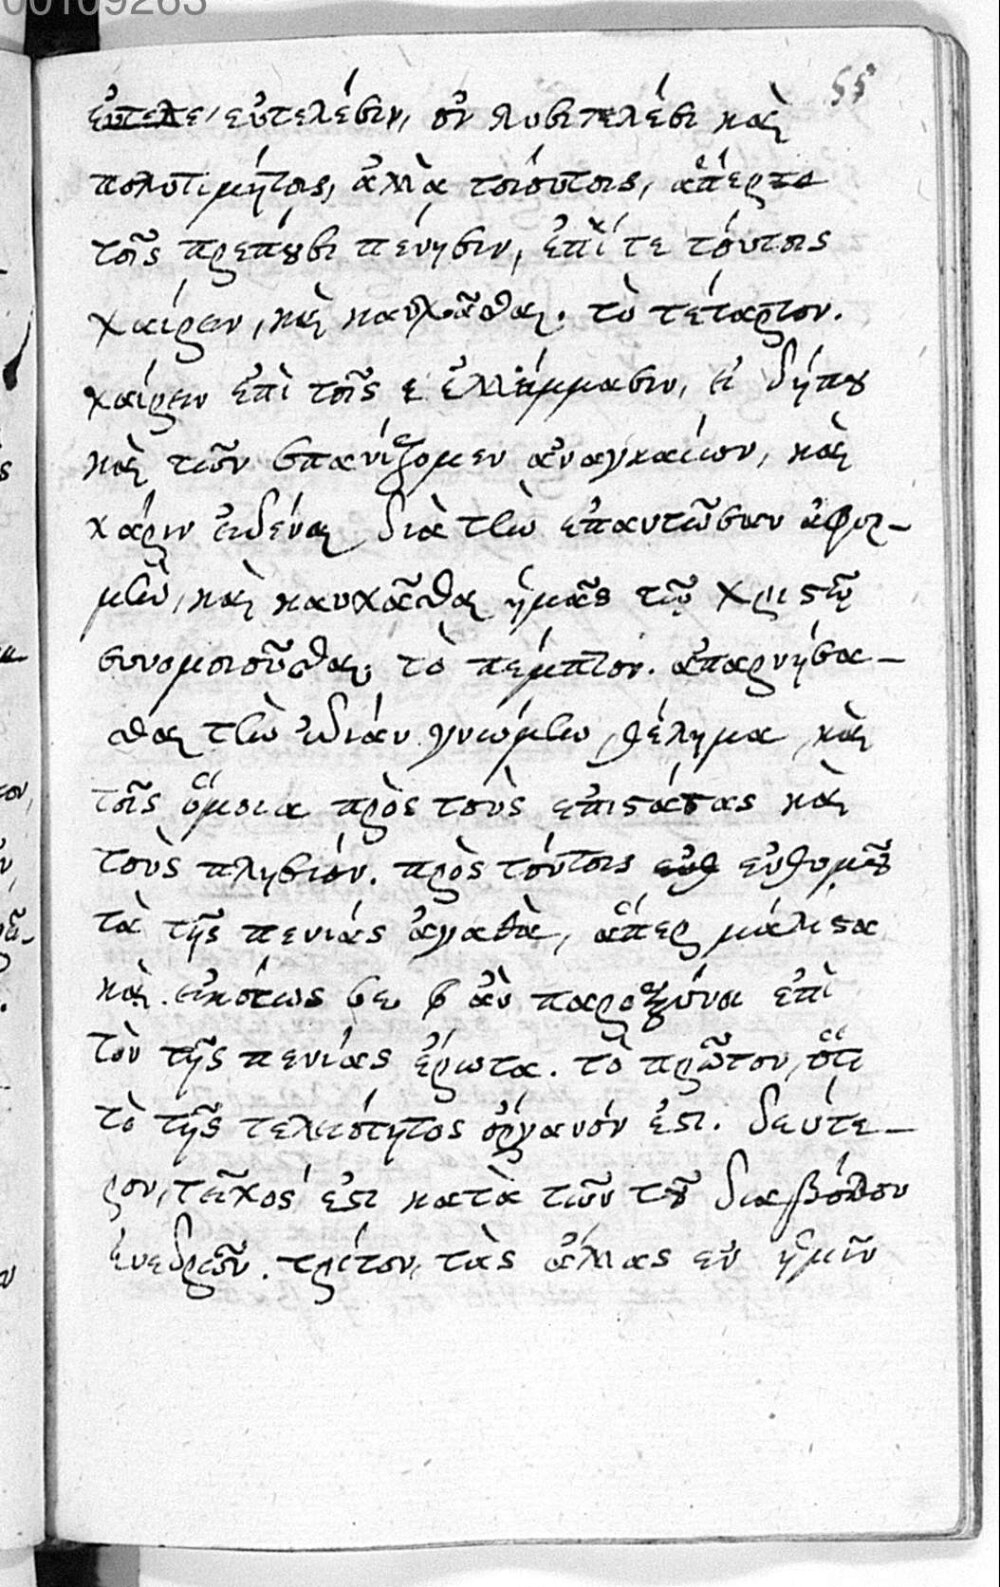 00109263
55
εὐτελε, εὐτελέσιν, οὐ λυσιτελέσι καὶ
πολυτιμήτοις, ἀλλὰ τοιούτοις, ἅπερ
τοῖς πρεπόυσι πένησιν, ἐπί τε τόυτοις
χαίρειν, καὶ καυχᾶσθαι. τὸ τέταρτον.
χαίρειν ἐπὶ τοῖς ἐλλείμμασιν, εἰ δήπου
καὶ τῶν σπανίζομεν ἀναγκαίων, καὶ
χάριν εἰδέναι διὰ τὴν ἐπαυτῶσαν ἀφορ-
μὴν, καὶ καυχᾶσθαι ἡμᾶς τῷ Χριστῷ
συνομοιοῦσθαι. τὸ πέμπτον. ἀπαρνήσα-
σθαι τὴν ἰδιάν γνώμην, θέλημα, καὶ
τοῖς ὅμοια πρὸς τοὺς ἐπιστάτας καὶ
τοὺς πλησιόν. πρὸς τόυτοις ἐυθυμοῦ
τὰ τῆς πενιάς ἀγαθὰ, ἅπερ μάλιστα
καὶ εἰκότως σε ἀν παροξύναι ἐπὶ
τὸν τῆς πενίας ἐρωτα. τὸ πρῶτον, ὅτι
τὸ τῆς τελειότητος ὀργανόν ἐστι. δεύτε-
ρον, τεῖχος ἐστι κατὰ τῶν τοῦ διαβόλου
ἐνεδρῶν. τρίτον, τὰς ἀλλας ἐν ἡμῖν